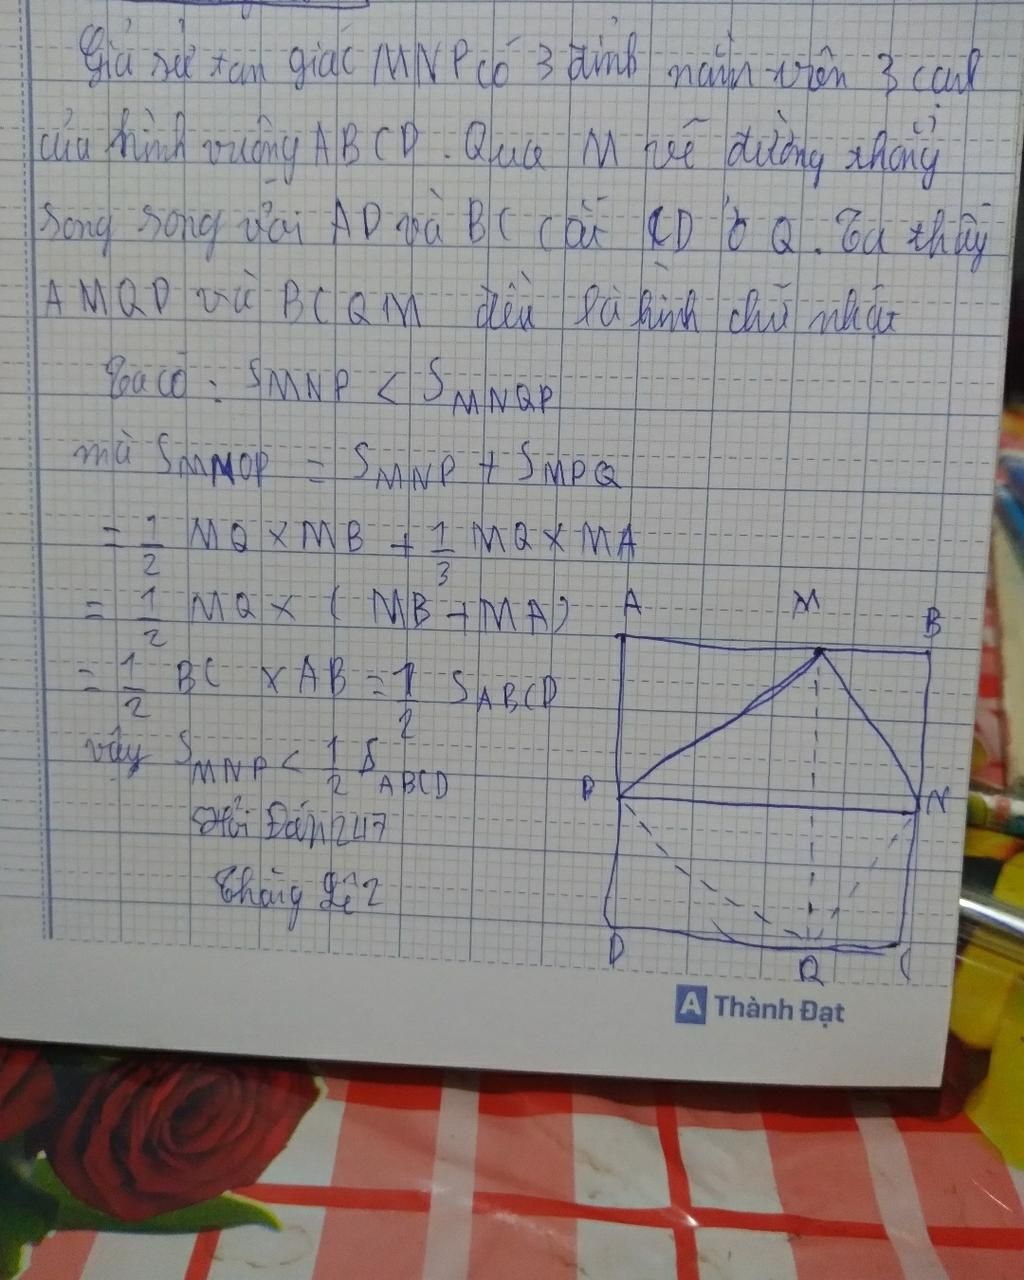 Giả sử tam giác MNP có 3 đỉnh nằm trên 3 cạnh
của hình vuông ABCD. Qua M vẽ đường thẳng
song song với AD và BC cắt CD ở Q. Ta thấy
AMQD và BCQM đều là hình chữ nhật
Ta có: SMNP < SMNQP
mà SMNQP = SMNP + SMPQ
= 1/2 MQ × MB + 1/3 MQ × MA
= 1/2 MQ × (MB + MA)
= 1/2 BC × AB = 1/2 SABCD
vậy SMNP < 1/2 SABCD
Hỏi Đáp 247
A M B
P N
D Q C
A Thành Đạt